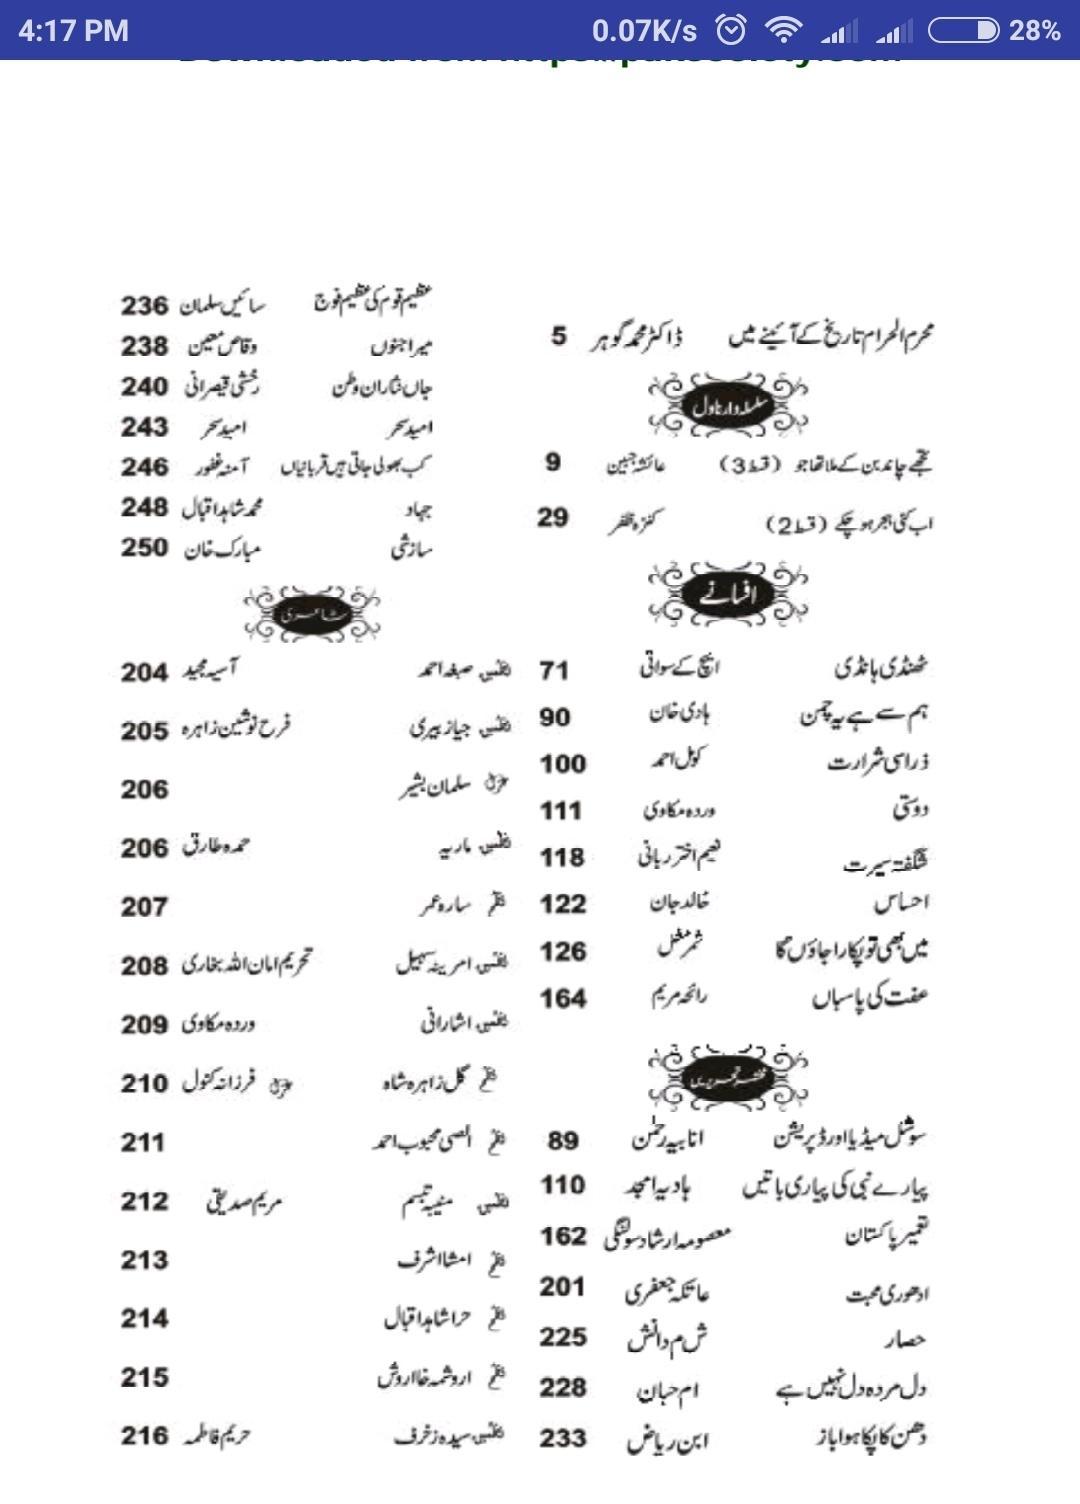 4:17 PM 0.07K/s 28%
محرم الحرام تاریخ کے آئینے میں ڈاکٹر محمد گوہر 5
سلسلہ وار ناول
تجھے چاند بن کے ملا تھا جو (قسط 3) عائشہ جبین 9
اب کئی ہجر ہو چکے (قسط 2) کنزہ ظفر 29
افسانے
ٹھنڈی ہانڈی ایچ کے سواتی 71
ہم سے ہے یہ چمن ہادی خان 90
ذرا سی شرارت کومل احمد 100
دوستی وردہ مکاوی 111
شگفتہ سیرت نعیم اختر ربانی 118
احساس خالد جان 122
میں بھی تو پکارا جاؤں گا ثمر مغل 126
عفت کی پاسباں رائحہ مریم 164
مختصر تحریریں
سوشل میڈیا اور ڈپریشن انابیہ رحمٰن 89
پیارے نبی کی پیاری باتیں ہادیہ امجد 110
تعمیر پاکستان معصومہ ارشاد سولنگی 162
ادھوری محبت عاتکہ جعفری 201
حصار ش م دانش 225
دل مردہ دل نہیں ہے ام حبان 228
دھن کا پکا ہوا باز ابن ریاض 233
عظیم قوم کی عظیم فوج سائیں سلمان 236
میرا جنوں وقاص معین 238
جاں نثاران وطن رخشی قیصرانی 240
امید سحر امید سحر 243
کب بھولی جاتی ہیں قربانیاں آمنہ غفور 246
جہاد محمد شاہد اقبال 248
سازشی مبارک خان 250
شاعری
نظمیں صبغہ احمد آسیہ مجید 204
نظمیں جیا زبیری فرح نوشین زاہرہ 205
غزل سلمان بشیر 206
نظمیں ماریہ حمدہ طارق 206
نظم سارہ عمر 207
نظمیں امرینہ سہیل تحریم امان اللہ بخاری 208
نظمیں اشارانی وردہ مکاوی 209
نظم گل زاہرہ شاہ غزل فرزانہ کنول 210
نظم محبوب احمد 211
نظمیں منیبہ تبسم مریم صدیقی 212
نظم امشا اشرف 213
نظم حرا شاہد اقبال 214
نظم اروشمہ خان اروش 215
نظمیں سیدہ زخرف حریم فاطمہ 216